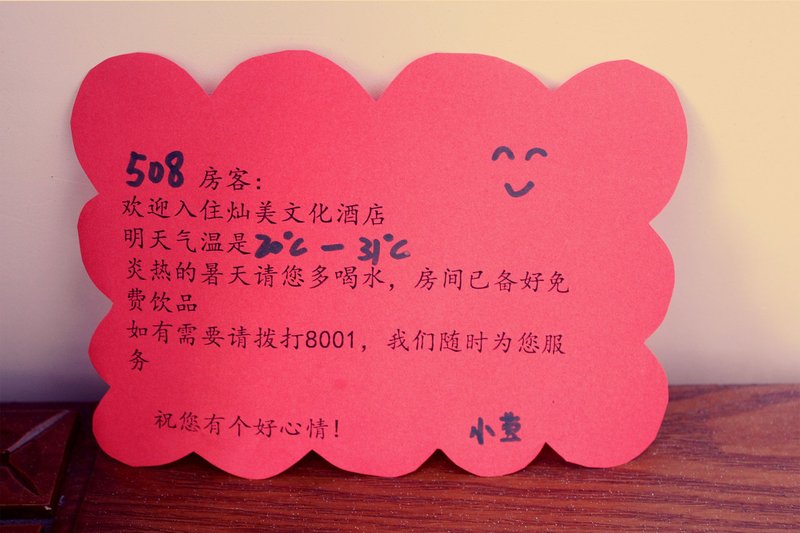 508 房客：
欢迎入住灿美文化酒店
明天气温是20℃－31℃
炎热的暑天请您多喝水，房间已备好免
费饮品
如有需要请拨打8001，我们随时为您服
务
祝您有个好心情！
小萱